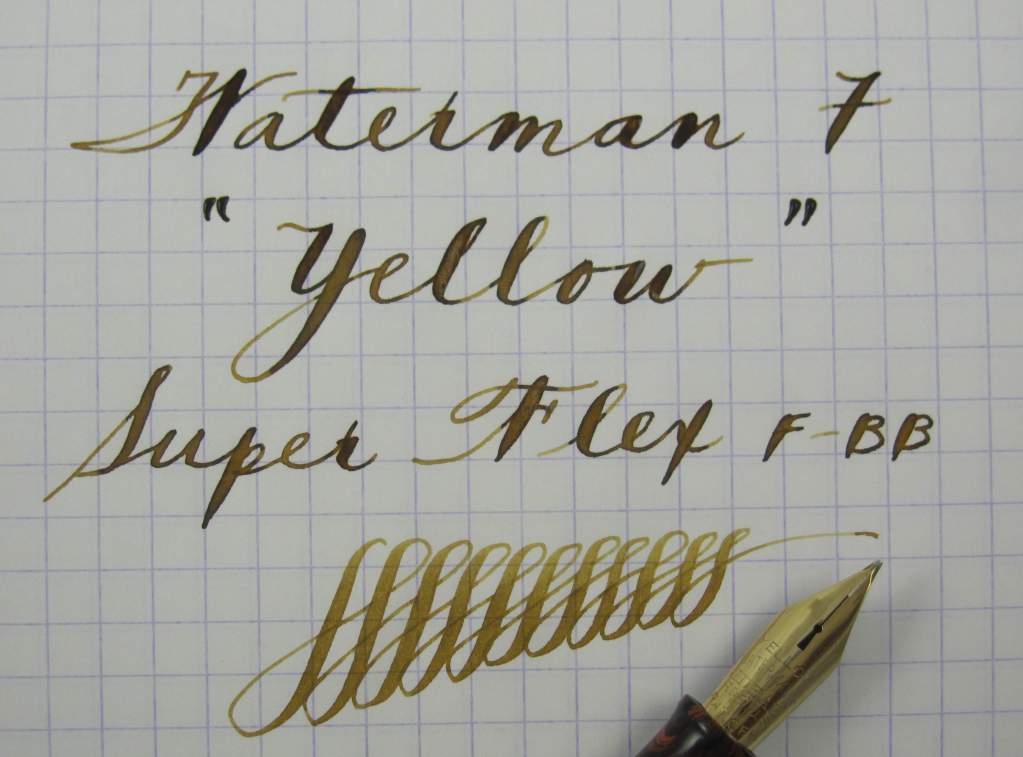 Waterman 7
"Yellow"
Super Flex F-BB